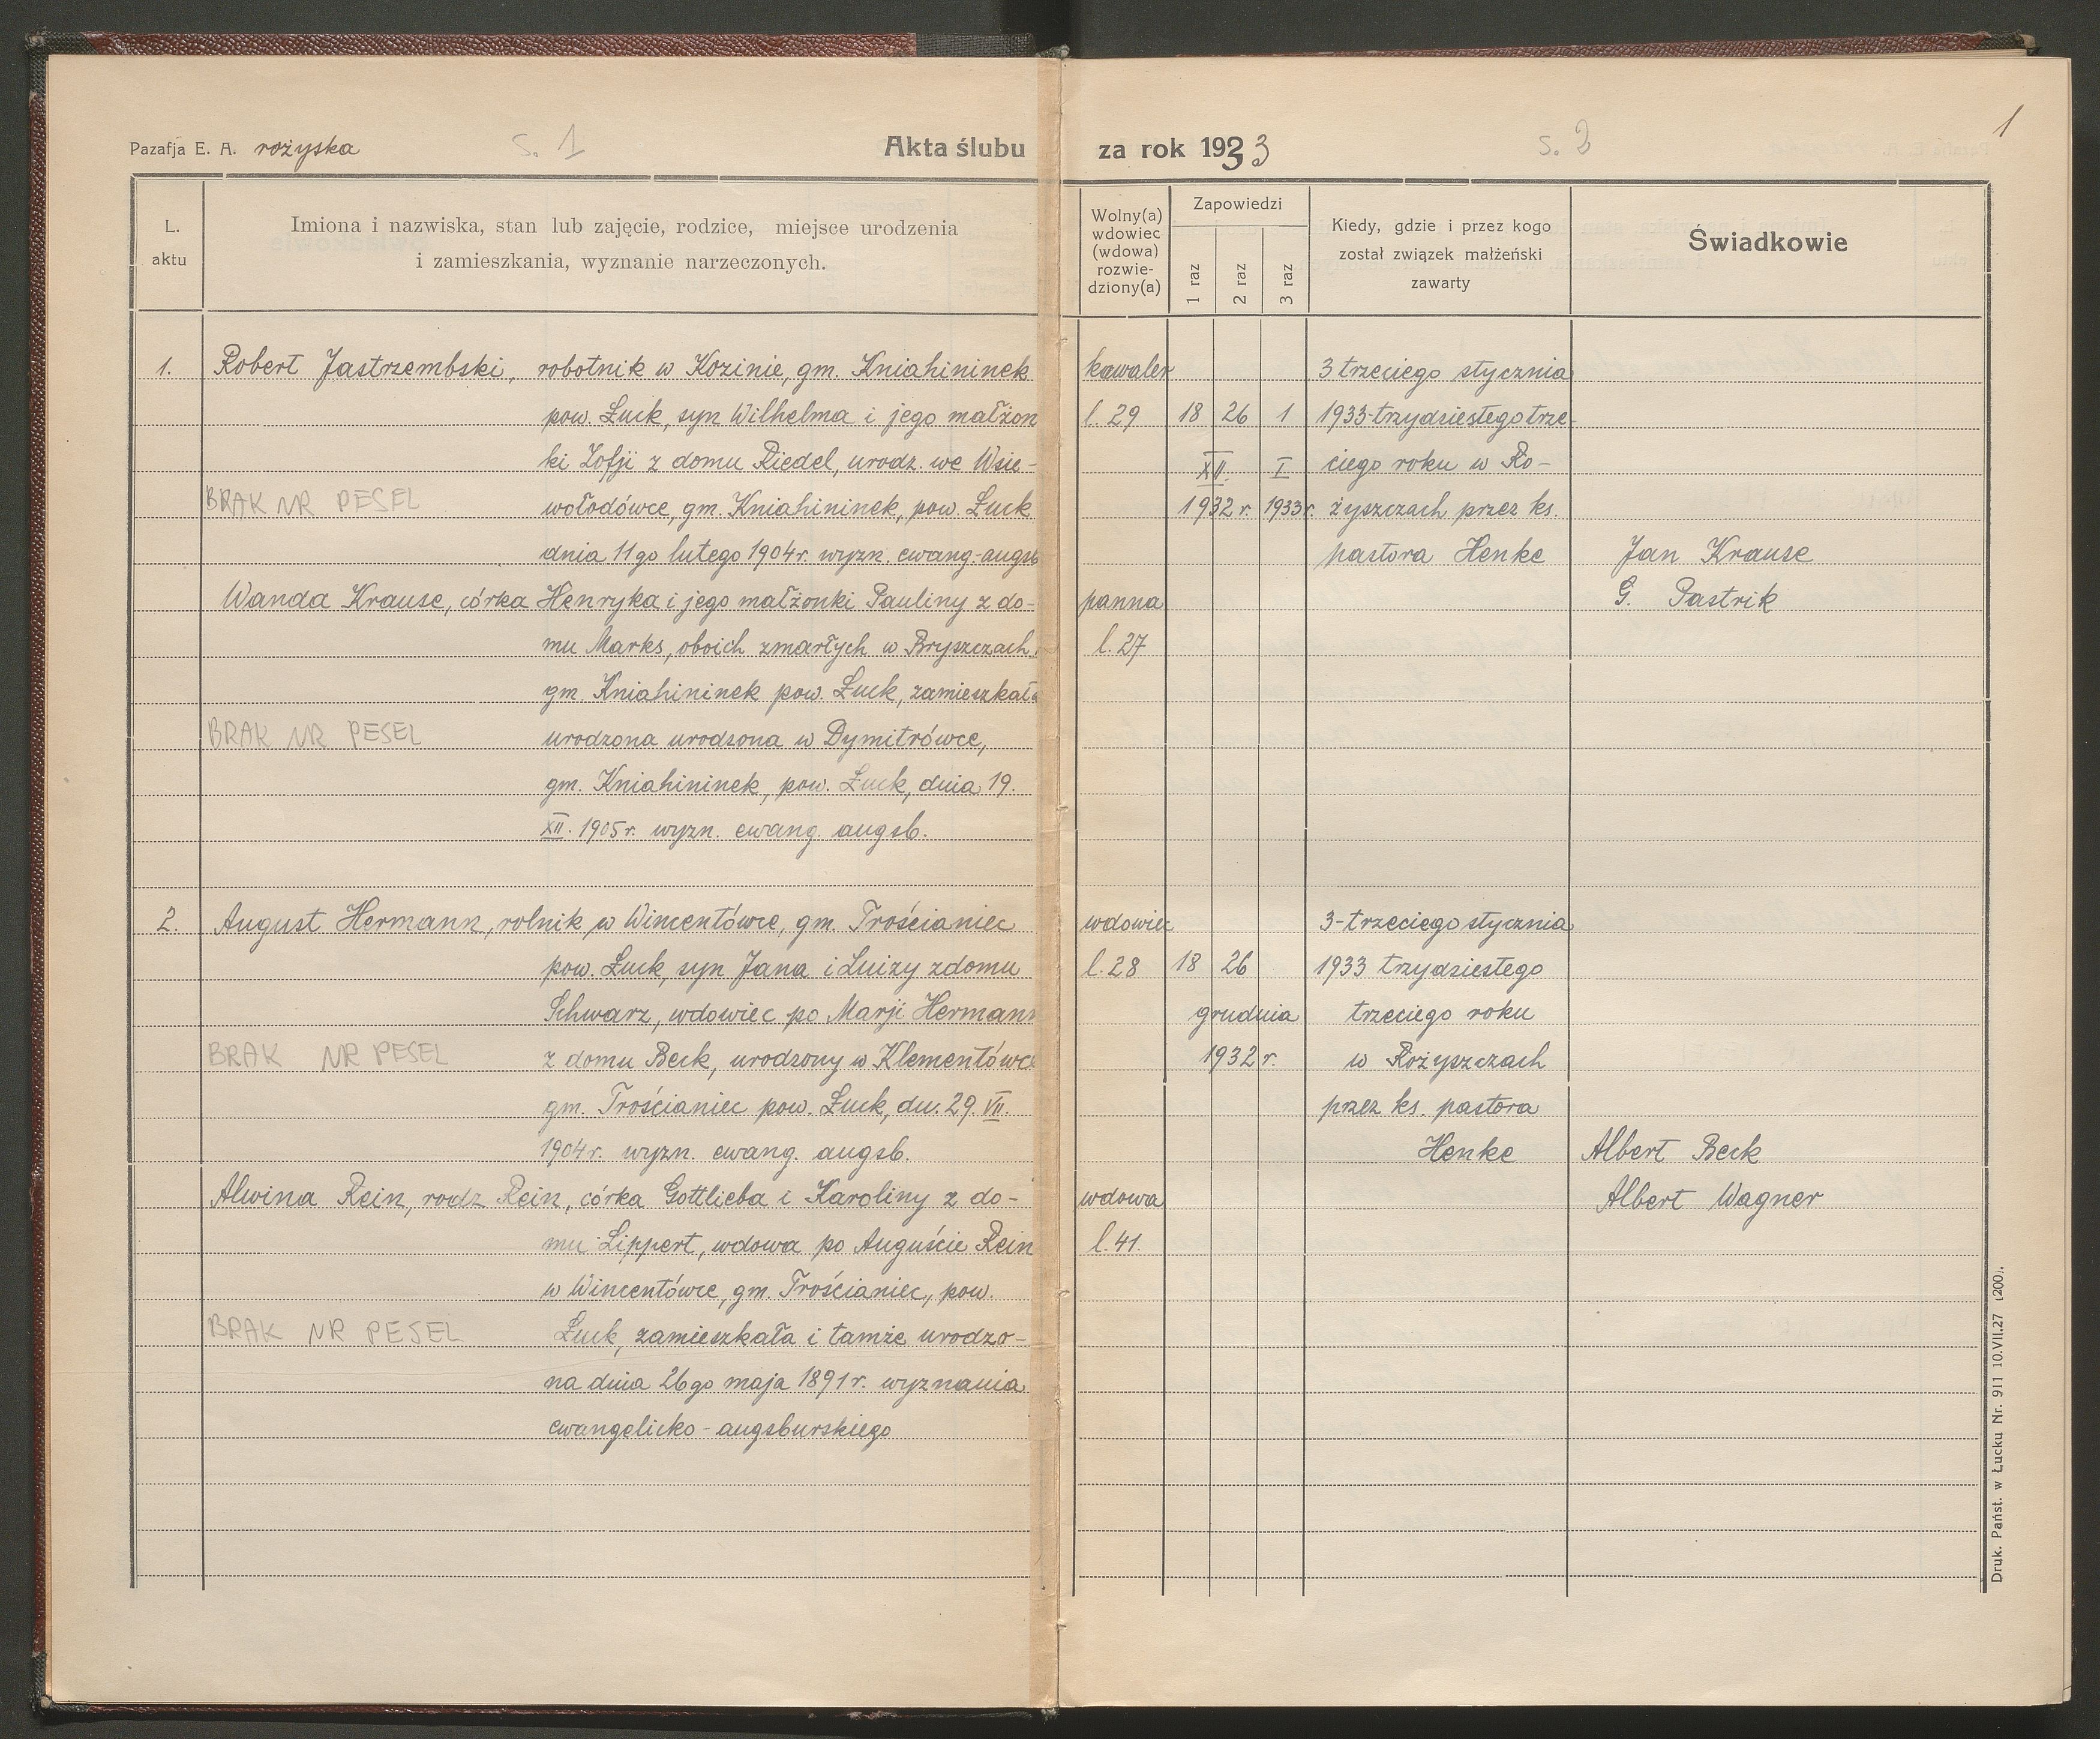 Pazafja E. A. rożyska
s. 1
Akta ślubu
L. aktu
Imiona i nazwiska, stan lub zajęcie, rodzice, miejsce urodzenia
i zamieszkania, wyznanie narzeczonych.
1. Robert Jastrzembski, robotnik w Kozinie, gm. Kniahininek
pow. Łuck, syn Wilhelma i jego małżon
ki Zofji z domu Riedel, urodz. we Wsie-
BRAK NR PESEL
wołodówce, gm. Kniahininek, pow. Łuck
dnia 11go lutego 1904r. wyzn. ewang.-augsb
Wanda Krause, córka Henryka i jego małżonki Pauliny z do-
mu Marks, oboich zmarłych w Bryszczach,
gm. Kniahininek pow. Łuck, zamieszkała
BRAK NR PESEL
urodzona urodzona w Dymitrówce,
gm. Kniahininek, pow. Łuck, dnia 19.
XII. 1905r. wyzn. ewang. augsb.
2. August Hermann, rolnik w Wincentówce, gm. Trościaniec
pow. Łuck, syn Jana i Luizy z domu
Schwarz, wdowiec po Marji Hermann
BRAK NR PESEL
z domu Beck, urodzony w Klementówce
gm. Trościaniec pow. Łuck, dn. 29. VII.
1904r. wyzn. ewang. augsb.
Alwina Rein, rodz Rein, córka Gottlieba i Karoliny z do-
mu Lippert, wdowa po Auguście Rein
w Wincentówce, gm. Trościaniec, pow.
BRAK NR PESEL
Łuck, zamieszkała i tamże urodzo-
na dnia 26go maja 1891r. wyznania
ewangelicko-augsburskiego
za rok 1933
s. 2
1
Wolny(a)
wdowiec
(wdowa)
rozwie-
dziony(a)
Zapowiedzi
1 raz
2 raz
3 raz
Kiedy, gdzie i przez kogo
został związek małżeński
zawarty
Świadkowie
kawaler 3 trzeciego stycznia
l. 29 18 26 1 1933-trzydziestego trze-
XII. I ciego roku w Ro-
1932 r. 1933 r. żyszczach przez ks.
pastora Henke Jan Krause
panna G. Pastrik
l. 27
wdowiec 3-trzeciego stycznia
l. 28 18 26 1933 trzydziestego
grudnia trzeciego roku
1932 r. w Rożyszczach
przez ks. pastora
Henke Albert Beck
wdowa Albert Wagner
l. 41.
Druk. Państ. w Łucku Nr. 911 10.VII.27 (200).